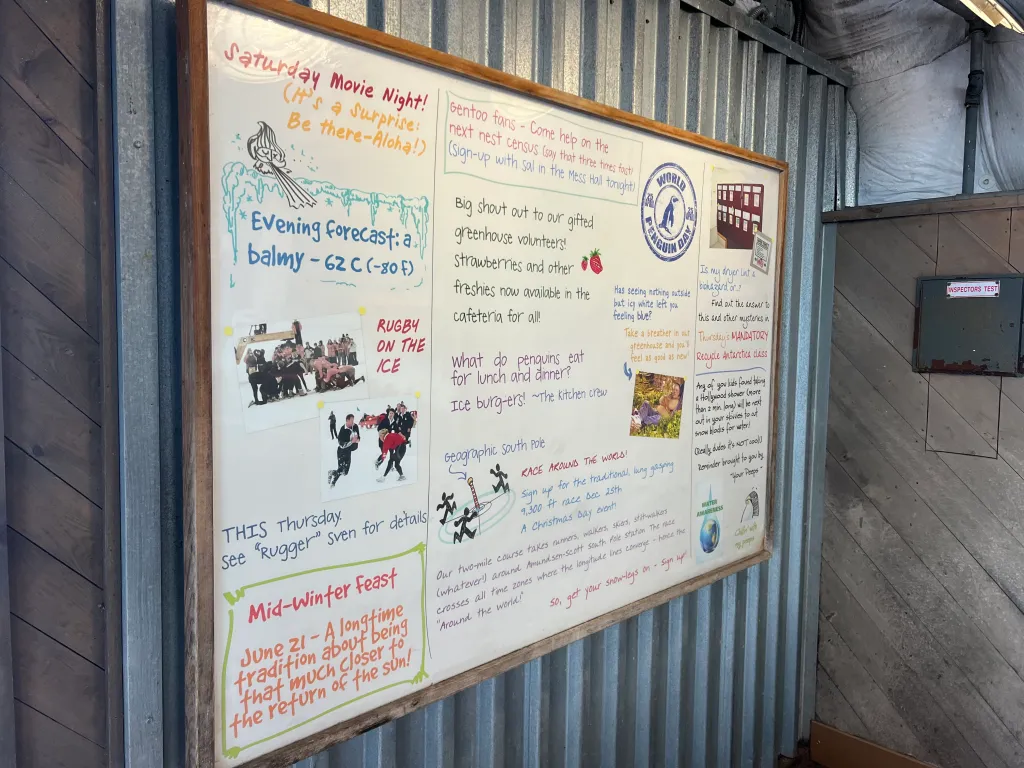 Saturday Movie Night!
(It's a Surprise:
Be there-Aloha!)
Evening forecast: a
balmy - 62 C (-80 f)
RUGBY
ON THE
ICE
THIS Thursday.
see "Rugger" Sven for details
Mid-Winter Feast
June 21 - A longtime
tradition about being
that much closer to
the return of the sun!
Gentoo fans - Come help on the
next nest census (say that three times fast)
(Sign-up with Sal in the Mess Hall tonight)
Big shout out to our gifted
greenhouse volunteers!
Strawberries and other
freshies now available in the
cafeteria for all!
What do penguins eat
for lunch and dinner?
Ice burg-ers! ~The Kitchen crew
WORLD
PENGUIN DAY
Has seeing nothing outside
but icy white left you
feeling blue?
Take a breather in our
greenhouse and you'll
feel as good as new!
Geographic South Pole
RACE AROUND THE WORLD!
Sign up for the traditional, lung gasping
9,300 ft race Dec. 25th
A Christmas Day event!
Our two-mile course takes runners, walkers, skiers, stilt-walkers
(whatever!) around Amundsen-Scott South Pole station. The race
crosses all time zones where the longitude lines converge - hence the
"Around the world!"
So, get your snow-legs on - sign up!
Is my dryer lint a
biohazard or..?
Find out the answer to
this and other mysteries in
Thursday's MANDATORY
Recycle Antarctica class
Any of you kids found taking
a Hollywood shower (more
than 2 min. long) will be next
out in your skivvies to cut
snow blocks for water!
(Really dudes it's NOT cool!)
Reminder brought to you by
"Your Peeps"
WATER
AWARENESS
Chillin' with
my peeps
INSPECTORS TEST